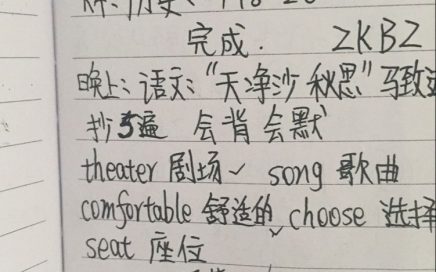 完成. ZKBZ
晚上: 语文: “天净沙 秋思” 马致远
抄5遍 会背 会默
theater 剧场 song 歌曲
comfortable 舒适的, choose 选择
seat 座位